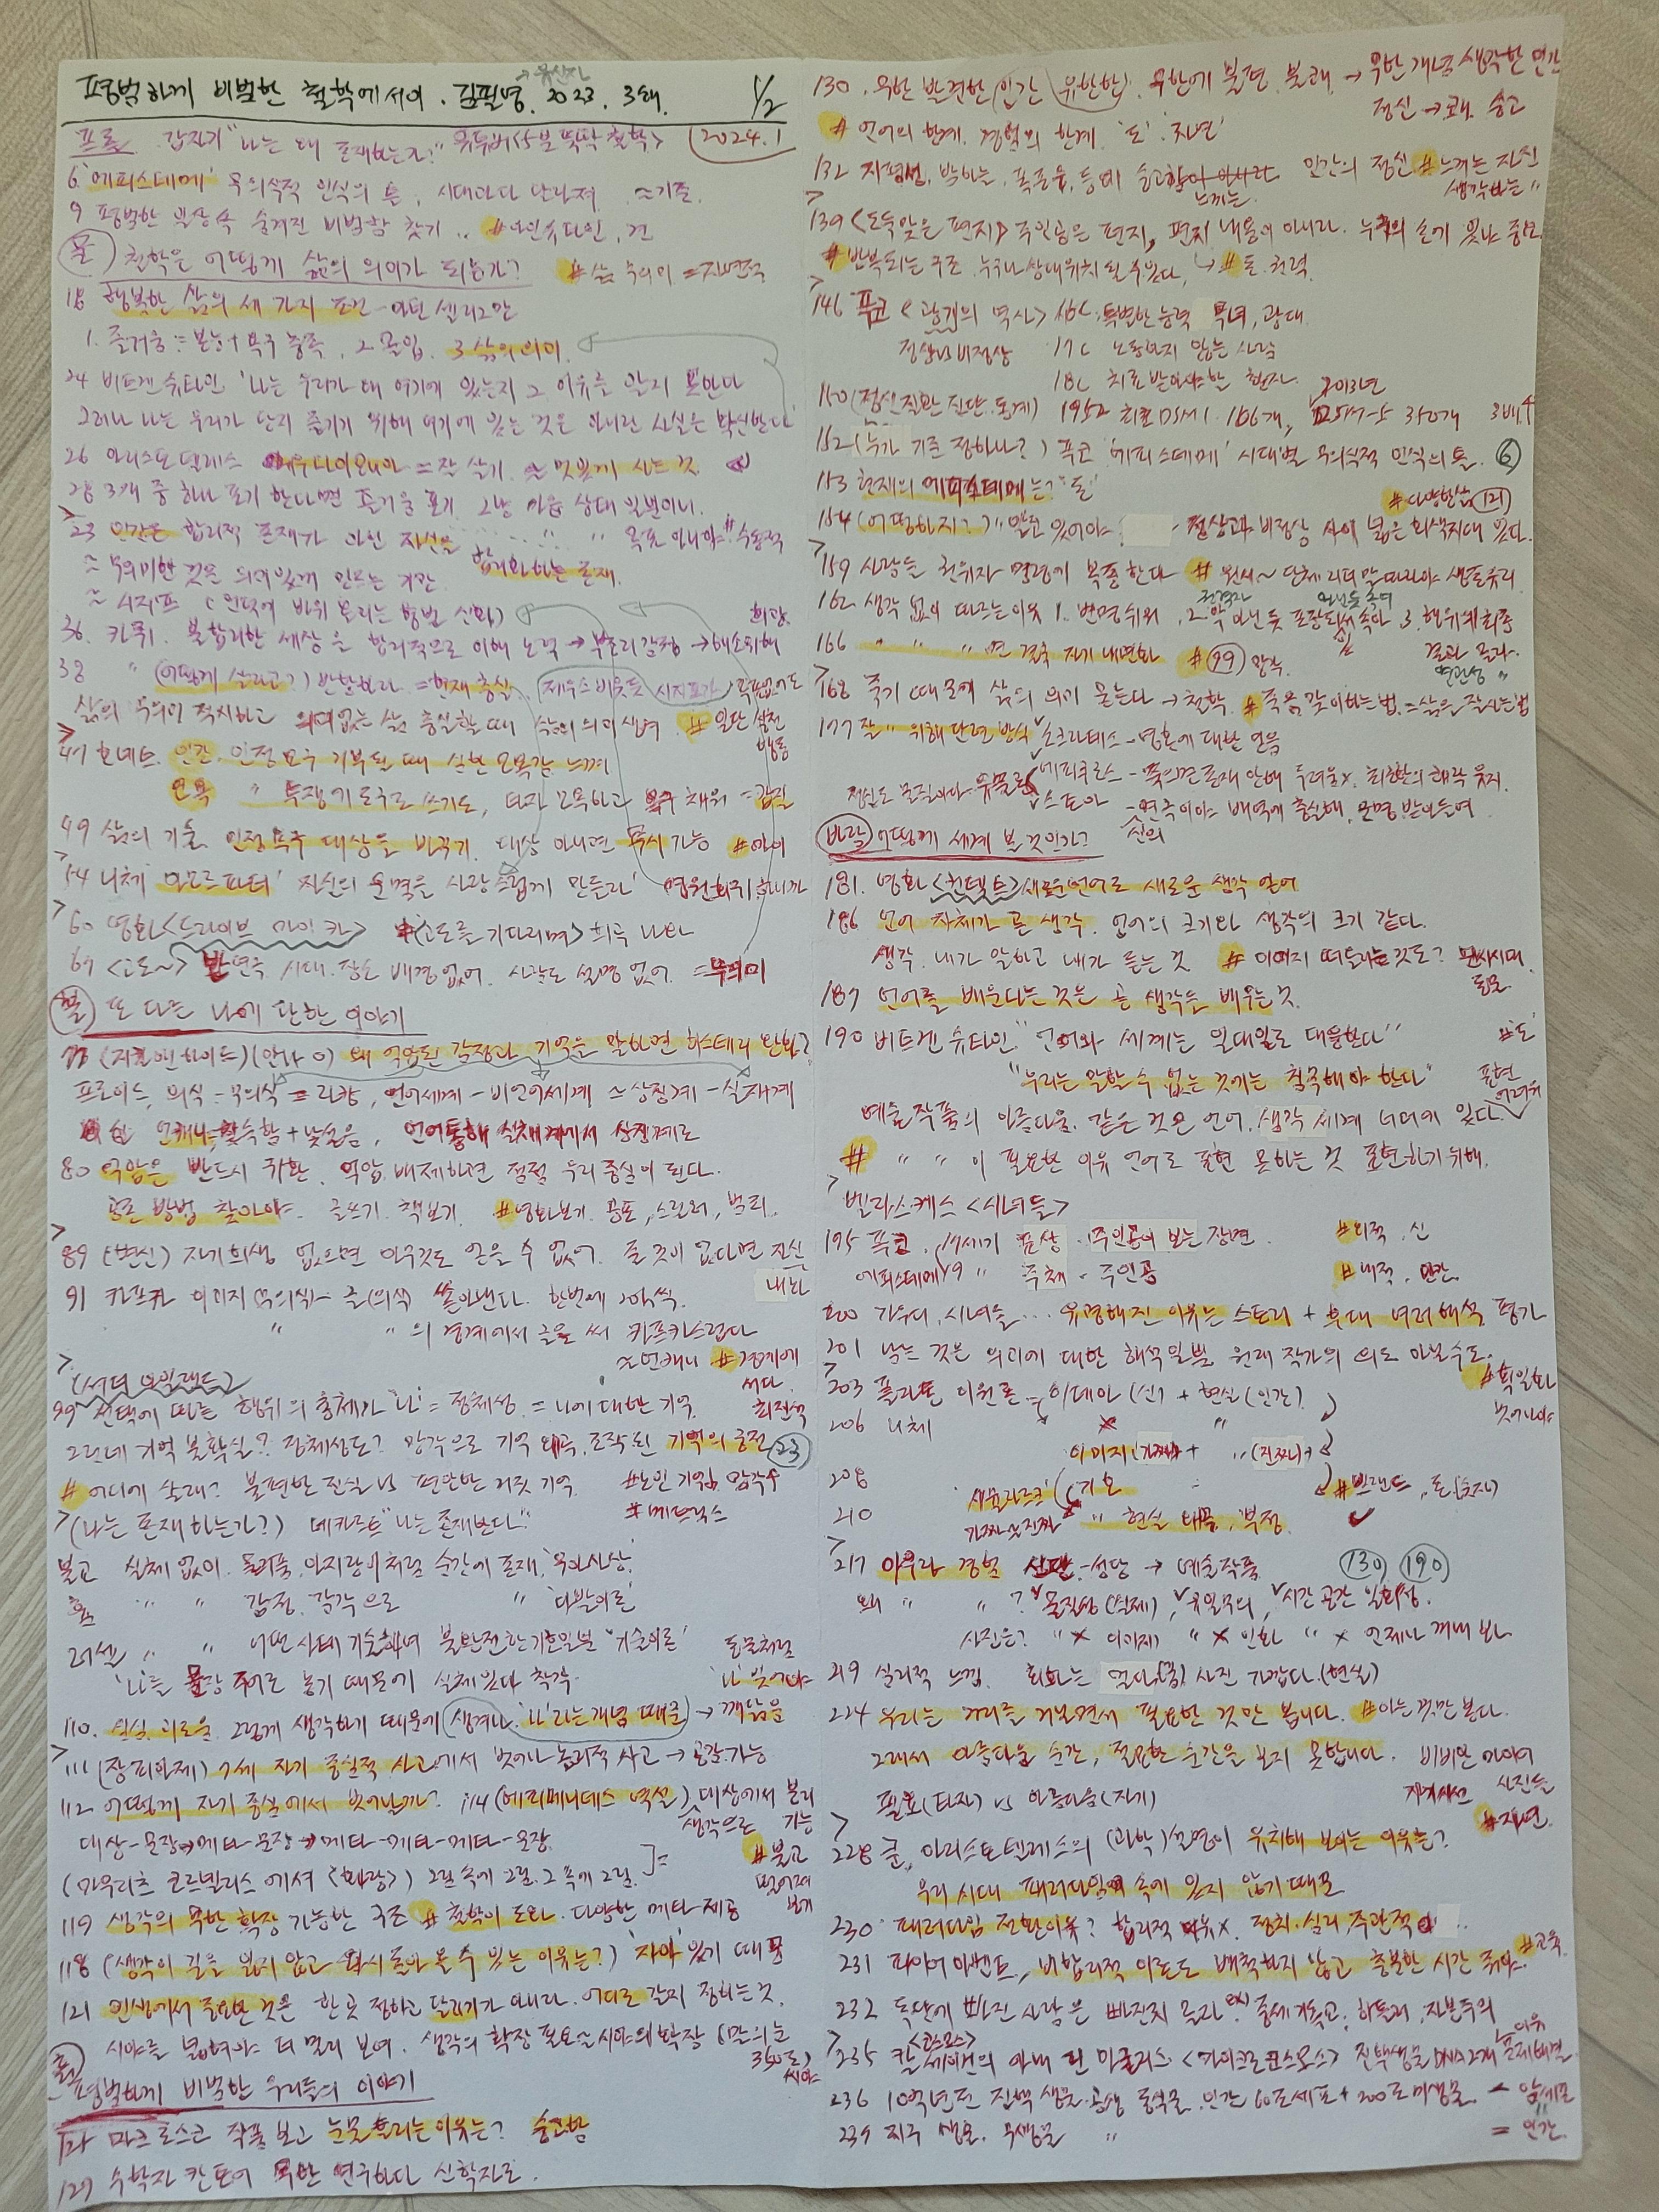 평범하게 비범한 철학에세이. 김필영. 2023. 3쇄. 1/2
프롤. 갑자기 "나는 왜 존재하는가?" 유튜버 <5분 뚝딱 철학> (2024.1
6 '에피스테메' 무의식적 인식의 틀, 시대마다 달라져 ≈기준.
9 평범한 일상 속 숨겨진 비범함 찾기.. #아인슈타인,
철학은 어떻게 삶의 의미가 되는가? #삶 무의미 =
18 행복한 삶의 세 가지 조건 - 마틴 셀리그만
1. 즐거움 = 본능+욕구 충족, 2 몰입. 3 삶의 의미.
24 비트겐슈타인 '나는 우리가 왜 여기에 있는지 그 이유를 알지 못한다
그러나 나는 우리가 단지 즐기기 위해 여기에 있는 것은 아니란 사실은 확신한다'
26 아리스토텔레스 에우다이모니아 = 잘 살기. ≈ 멋있게 사는 것.
28 3개 중 하나 포기 한다면 즐거움 포기
23 인간은 합리적 존재가 아닌 자신을 합리화하는 존재.
≈ 무의미한 것을 의미있게 만드는 거란
≈ 시지프 (언덕에 바위 올리는 형벌 신화) 희랍
36. 카뮈. 불합리한 세상을 합리적으로 이해 노력 → 부조리 감정 → 해소 위해
38 〃 (어떻게 살라고?) 반항하라 = 현재 충실. 제우스 비웃듯 시지프가 목표없어도
삶의 무의미 직시하고 의미없는 삶 충실할 때 삶의 의미 생겨 #일단 실천 행동
47 호네트. 인간. 인정욕구 거부될 때 심한 모욕감 느껴
모욕 〃 투쟁기 도구로 쓰기도, 타자 모욕하고 욕구 채워 = 갑질
49 삶의 기술 인정욕구 대상을 바꾸기. 대상 아니면 무시 가능 #아이
54 니체 아모르파티 '자신의 운명을 사랑스럽게 만들라' 영원회귀 하니까
60 영화 <드라이브 마이 카> #<고도를 기다리며> 희곡 나와
69 <고도~> 반연극. 시대. 장소 배경없어. 사건도 설명 없어. =무의미
또 다른 나에 관한 이야기
77 (지킬 앤 하이드) (안나 O) 왜 억압된 감정과 기억을 말하면 히스테리 완화?
프로이드, 의식 - 무의식 = 라캉, 언어세계 - 비언어세계 ≈ 상징계 - 실재계
언캐니 = 익숙함 + 낯설음, 언어통해 실재계에서 상징계로
80 억압은 반드시 귀환. 억압 배제하면 점점 우리 중심이 된다.
공존 방법 찾아야. 글쓰기. 책보기. #영화보기. 공포, 스릴러,
89 (변신) 자기희생 없으면 아무것도 얻을 수 없어. 줄 것이 없다면 자신 내놔
91 카프카 이미지 (무의식)~ 글(의식) 쏟아낸다. 한번에
〃 〃 의 경계에서 글을 써 카프카스럽다
≈언캐니 #경계에 서다.
(셔터 아일랜드)
99 선택에 따른 행위의 총체가 '나' = 정체성. = 나에 대한 기억. 회전석
그런데 기억 불확실? 정체성도? 망각으로 기억 왜곡, 조작된 기억의 총전 (23)
#어디에 살래? 불편한 진실 vs 편안한 거짓 기억. #노인 기억↓ 망각↑
(나는 존재하는가?) 데카르트 "나는 존재한다" #매트릭스
불교 실체 없이. 물거품, 아지랑이처럼 순간에 존재, '무아사상'
흄 〃 〃 감정. 감각으로 〃 '다발이론'
러셀 〃 〃 어떤 사태 기술하며 불완전한 기호일뿐 '기술이론' 동물처럼
'나'를 문장 주어로 놓기 때문에 실체있다 착각. '나' 잊어야
110. 괴로움 그렇게 생각하기 때문에 (생겨나. '나'라는 개념 때문) → 깨달음
111 (장피아제) 7세 자기 중심적 사고에서 벗어나 논리적 사고 → 공감 가능
112 어떻게 자기 중심에서 벗어날까? 114 (에피메니데스 역설) 대상에서 분리 생각으로 가능
대상-문장→메타-문장→메타-메타-메타-문장
(마우리츠 코르넬리스 에셔 <화랑>) 그림 속에 그림. 그 속에 그림. #불교 떨어져 보기
119 생각의 무한 확장 가능한 구조 #철학이 도와. 다양한 메타 제공
118 (생각이 길을 잃지 않고 다시 돌아올 수 있는 이유는?) '자아' 있기 때문
121 인생에서 중요한 것은 한 곳 정하고 달리기가 아니라. 어디로 갈지 정하는 것.
시야를 넓혀야 더 멀리 보여. 생각의 확장 필요 ≈ 시야의 확장 (말의 눈 350도) 시야
평범하게 비범한 우리들의 이야기
마크 로스코 작품 보고 눈물 흘리는 이유는? 숭고함
129 수학자 칸토어 무한 연구하다 신학자로.
130. 무한 발견한 인간 (유한한) 무한에 불편. 불쾌. → 무한 개념 생각한 인간 정신 → 쾌. 숭고
#언어의 한계. 경험의 한계. '도' '자연'
132 지평선, 밤하늘, 폭풍우, 등에 숭고함이 아니라 느끼는 인간의 정신 #느끼는 자신 생각하는 〃
139 <도둑맞은 편지> 주인공은 편지, 편지 내용이 아니라. 누구의 손에 있나 중요.
#반복되는 구조. 누구나 상대위치 될 수 있다, ↳#돈. 권력.
146 푸코 <광기의 역사> 16C. 특별한 능력 마녀, 광대.
정상vs비정상 17C 노동하지 않는 사람
18C 치료받아야할 환자.
150 (정신질환 진단. 통계) 1952 최초 DSM1. 106개, 2013년 DSM-5 350개 3배↑
152 (누가 기준 정하나?) 푸코 '에피스테메' 시대별 무의식적 인식의 틀. (6)
153 현재의 에피스테메는? "돈" #다양한 삶 (121)
154 (어떡하지?) "알고 있어야 - 정상과 비정상 사이 넓은 회색지대 있다.
159 사람들 권위자 명령에 복종한다 #원시~ 단체 리더 말 따라야 생존유리
162 생각 없이 따르는 이유 1. 변명 쉬워, 2. 악 아닌 듯 포장되서 속아 3. 행위에 최종 결과 몰라.
166 〃 〃 〃 면 결국 자기 내면화 #(99) 망각.
168 죽기 때문에 삶의 의미 묻는다 → 철학. #죽음 맞이하는 법 = 삶을 잘 사는 법
177 잘 〃 위해 단련 방식 소크라테스 - 영혼에 대한 믿음
정신도 물질이다. 유물론 에피쿠로스 - 죽으면 존재 안해 두려움X. 최한의 쾌락 유지.
스토아 - 연극이야 배역에 충실해, 운명 받아들여
신의
어떻게 세계 볼 것인가?
181. 영화 <컨택트> 새로운 언어로 새로운 생각 얻어
186 언어 자체가 곧 생각. 언어의 크기와 생각의 크기 같다.
생각. 내가 말하고 내가 듣는 것 #이미지 떠올리는 것도?
187 언어를 배운다는 것은 곧 생각을 배우는 것.
190 비트겐슈타인 "언어와 세계는 일대일로 대응한다" #'도'
"우리는 말할 수 없는 것에는 침묵해야 한다" 표현 어려워
예술 작품의 아름다움. 같은 것은 언어. 생각. 세계 너머에 있다.
# 〃 〃 이 필요한 이유 언어로 표현 못하는 것 표현하기 위해.
벨라스케스 <시녀들>
195 푸코. 17세기 표상 - 주인공이 보는 장면. #외적. 신
에피스테메 19 〃 주체 - 주인공 #내적. 인간.
200 가우디, 시녀들... 유명해진 이유는 스토리 + 후대 여러 해석 평가
201 남는 것은 의미에 대한 해석일뿐 원래 작가의 의도 아닐수도. #획일화 벗어나야
203 플라톤 이원론 = 이데아 (신) + 현실 (인간)
206 니체 × 〃
이미지 (가짜) + 〃 (진짜)
208 '시뮬라크르' (기호 #브랜드, 돈. (숫자)
210 가짜 진짜 〃 현실 왜곡, 부정.
217 아우라 경험 신전-성당 → 예술작품 (130) (190)
왜 〃 〃 ? 물질성(실체), 유일무의, 시간 공간 일회성.
사진은? 〃 × 이미지 〃 × 인화 〃 × 언제나 꺼내 봐
219 심리적 느낌. 회화는 멀다(꿈) 사진 가깝다. (현실)
224 우리는 거리를 거닐면서 필요한 것만 봅니다. #아는 것만 본다.
그래서 아름다운 순간, 절묘한 순간을 보지 못합니다. 비비안 마이어 사진들
필요(타자) vs 아름다움(자기) #자연.
228 쿤, 아리스토텔레스의 (과학) 설명이 유치해 보이는 이유는?
우리 시대 패러다임 속에 있지 않기 때문
230 패러다임 전환이유? 합리적 이유X. 정치. 심리. 주관적
231 파이어아벤트, 비합리적 이론도 배척하지 않고 충분한 시간 줘야. #교육.
232 독단에 빠진 사람은 빠진지 몰라 ex) 중세 기독교, 히틀러, 자본주의
235 칼 세이건의 아내 린 마굴리스 <마이크로 코스모스> 진핵생물 DNA 2개 이유 문제해결
<코스모스>
236 10억년전 진핵 생물. 공생 동식물. 인간 60조 세포 + 200조 미생물 - 암세포
239 지구 생물. 무생물 〃 = 인간.